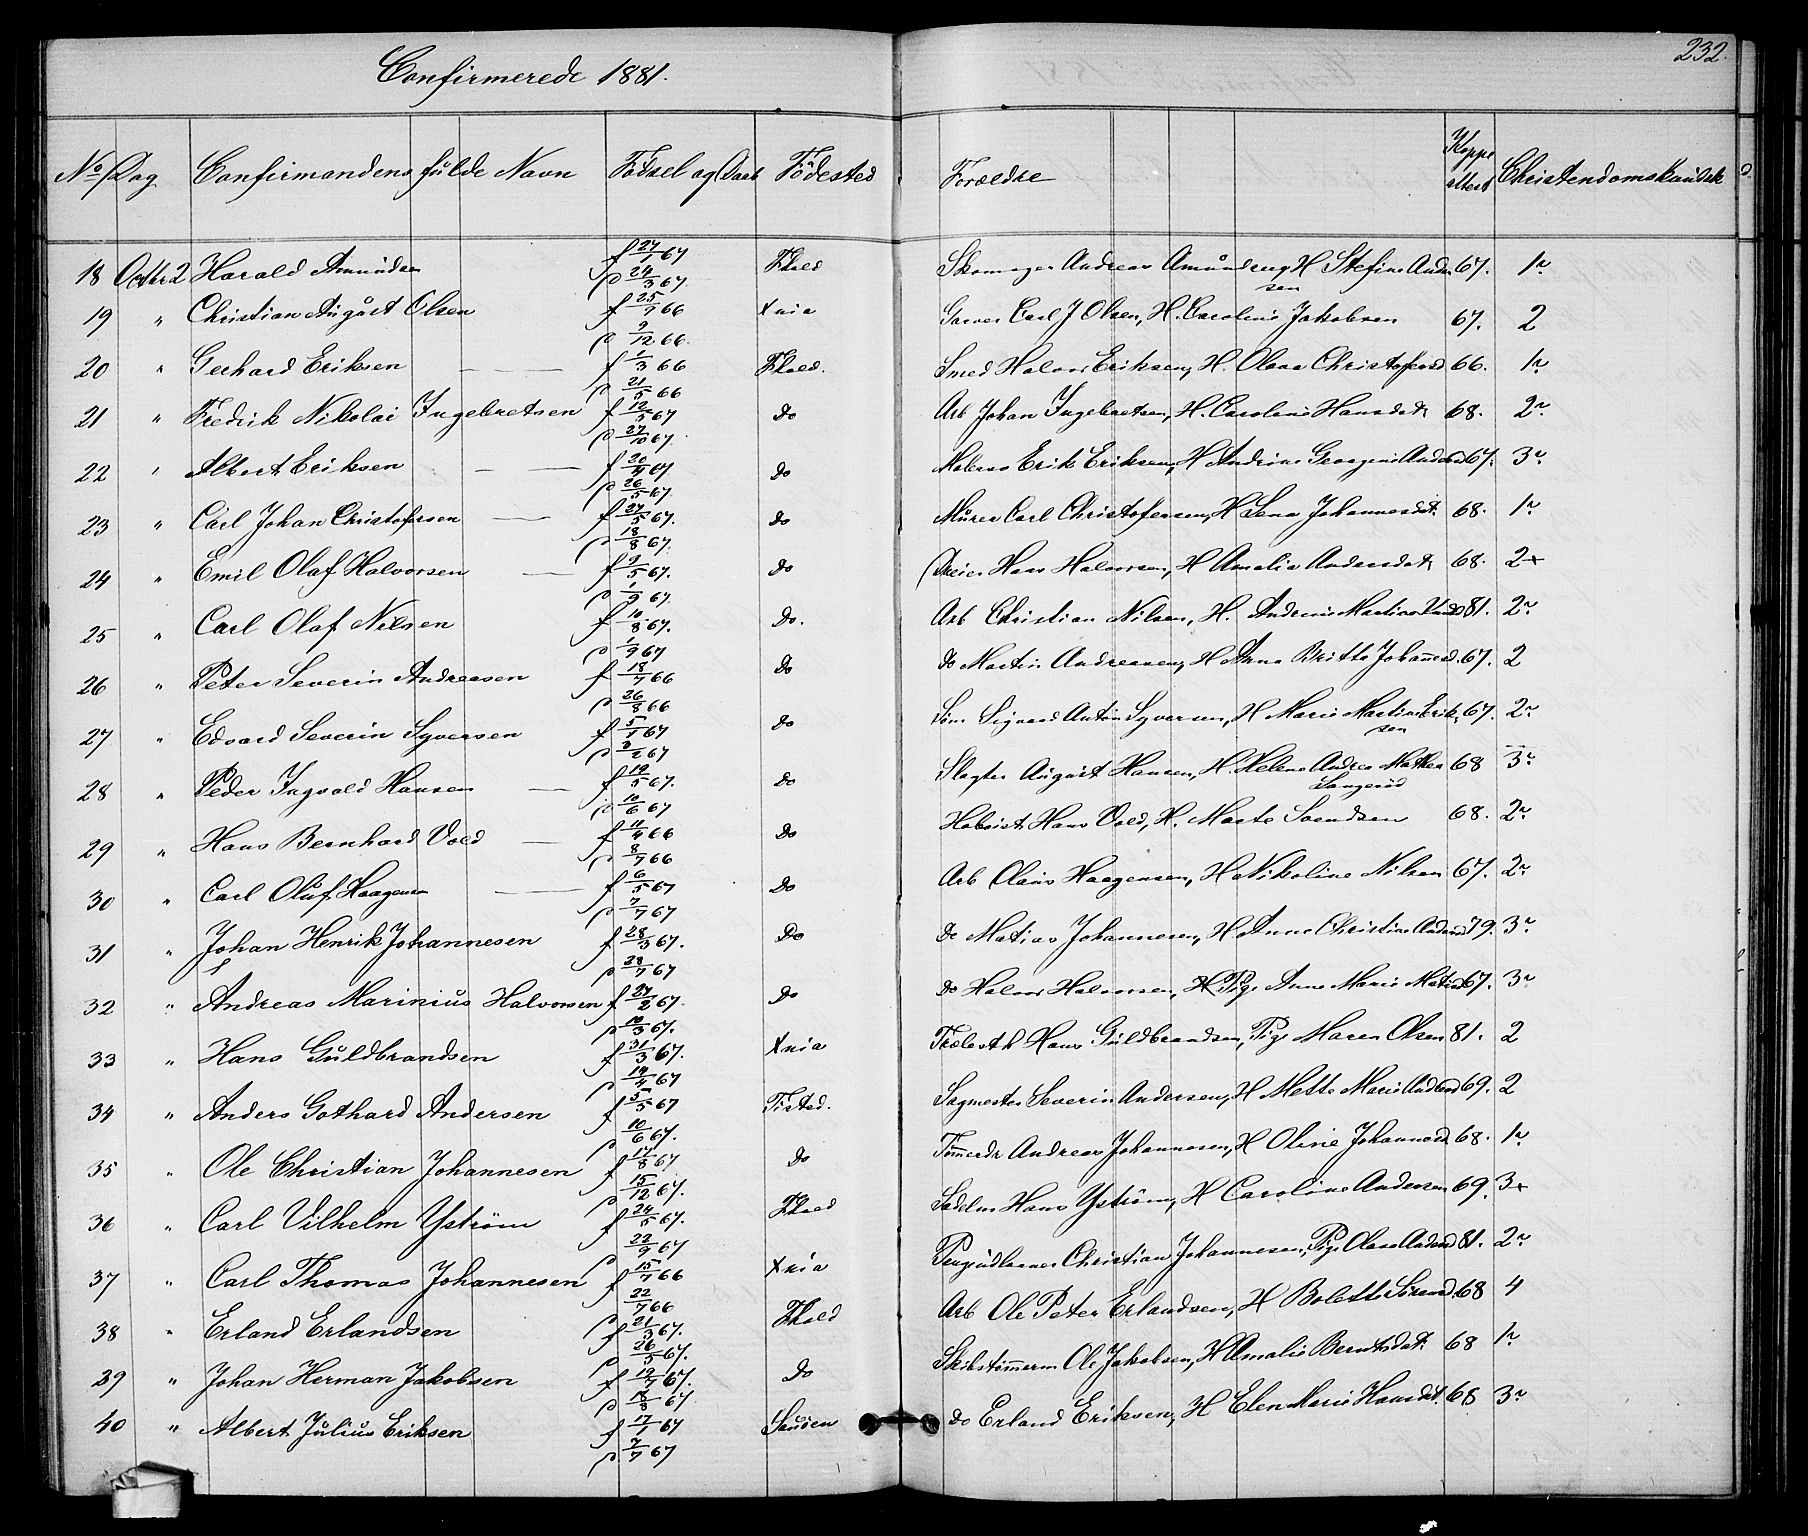 232.
Confirmerede 1881.
No Dag Confirmandens fulde Navn Fødsel og Daab Fødested Forældre Koppeattest Christendomskundsk
18 Octbr 2 Harald Amundsen f 27/1 67 p 24/3 67 Fhald Skomager Andreas Amundsen, H Stefine Anders 67. 1r
19 " Christian August Olsen f 25/7 66 p 9/12 66 Xnia Garver Carl J Olsen, H. Caroline Jakobsen 67. 2
20 " Gerhard Eriksen f 1/3 66 p 21/5 66 Fhald. Smed Halvor Eriksen, H. Olava Christofersd 66. 1r
21 " Fredrik Nikolai Ingebretsen f 12/5 67 p 27/10 67. Do Arb Johan Ingebretsen, H. Caroline Hansdat 68. 2r
22 " Albert Eriksen f 20/4 67 p 26/5 67. Do Erik Eriksen, H Andrine Georgine Andersd 67. 3r
23 " Carl Johan Christofersen f 27/5 67. p 18/8 67. Do Murer Carl Christofersen, H Lena Johannesdat. 68. 1r
24 " Emil Olaf Halvorsen f 9/5 67. p 1/9 67. Do Dreier Hans Halvorsen, H Amalia Andersdat 68. 2+
25 " Carl Olaf Nilsen f 10/8 67. p 1/9 67 Do. Arb Christian Nilsen, H. Andrine Martine 81. 2r
26 " Peter Severin Andreasen f 18/7 66 p 26/8 66 Do Do Martin Andreasen, H Anna Britta Johannesd. 67. 2
27 " Edvard Severin Syversen f 5/1 67 p 3/2 67 Do Sigvard Anton Syversen, H Marie Martine Eriksen 67. 2r
28 " Peder Ingvald Hansen f 19/5 67. p 10/6 67 Do Slagter August Hansen, H. Helene Andrea Mathea Langerød 68 3r
29 " Hans Bernhard Vold f 11/4 66 p 8/7 66 Do Hans Vold, H. Marte Svendsen 68. 2r
30 " Carl Oluf Haagensen f 6/5 67 p 7/7 67 Do Arb Olaus Haagensen, H Nikoline Nilsen 67. 2r
31 " Johan Henrik Johannesen f 28/3 67. p 28/7 67 Do Do Matias Johannesen, H Anne Christine Andersd 79. 3r
32 " Andreas Marinius Halvorsen f 27/2 67. p 10/3 67. Do Do Halvor Halvorsen, Pige Anne Marie Matisd 67. 3r
33 " Hans Guldbrandsen f 31/3 67. p 14/4 67 Xnia Trælasth Hans Guldbrandsen, Pige Maren Olsen 81. 2
34 " Anders Gothard Andersen f 5/5 67 p 10/6 67. Tisted. Sagmester Severin Andersen, H Mette Marie Andersd 69. 2
35 " Ole Christian Johannesen f 17/8 67 p 15/12 67. Do Tømmerdr Andreas Johannesen, H Oline Johannesd. 68. 1r
36 " Carl Vilhelm Ystrøm f 24/5 67. p 22/9 67 Fhald Sadelm Hans Ystrøm, H Caroline Andersen 69. 3+
37 " Carl Thomas Johannesen f 15/7 66 p 22/7 66 Xnia Christian Johannesen, Pige Olava Andersd 81. 2r
38 " Erland Erlandsen f 21/3 67. p 26/5 67. Fhald Arb Ole Peter Erlandsen, H Bolette Sørensd. 68 4
39 " Johan Herman Jakobsen f 19/7 67. p 18/8 67 Do Skibstømmerm Ole Jakobsen, H Amalie Berntsdat. 68 1r
40 " Albert Julius Eriksen f 17/1 67 p 7/7 67 Do Erland Eriksen, H Elen Marie Hansdt. 68 3r